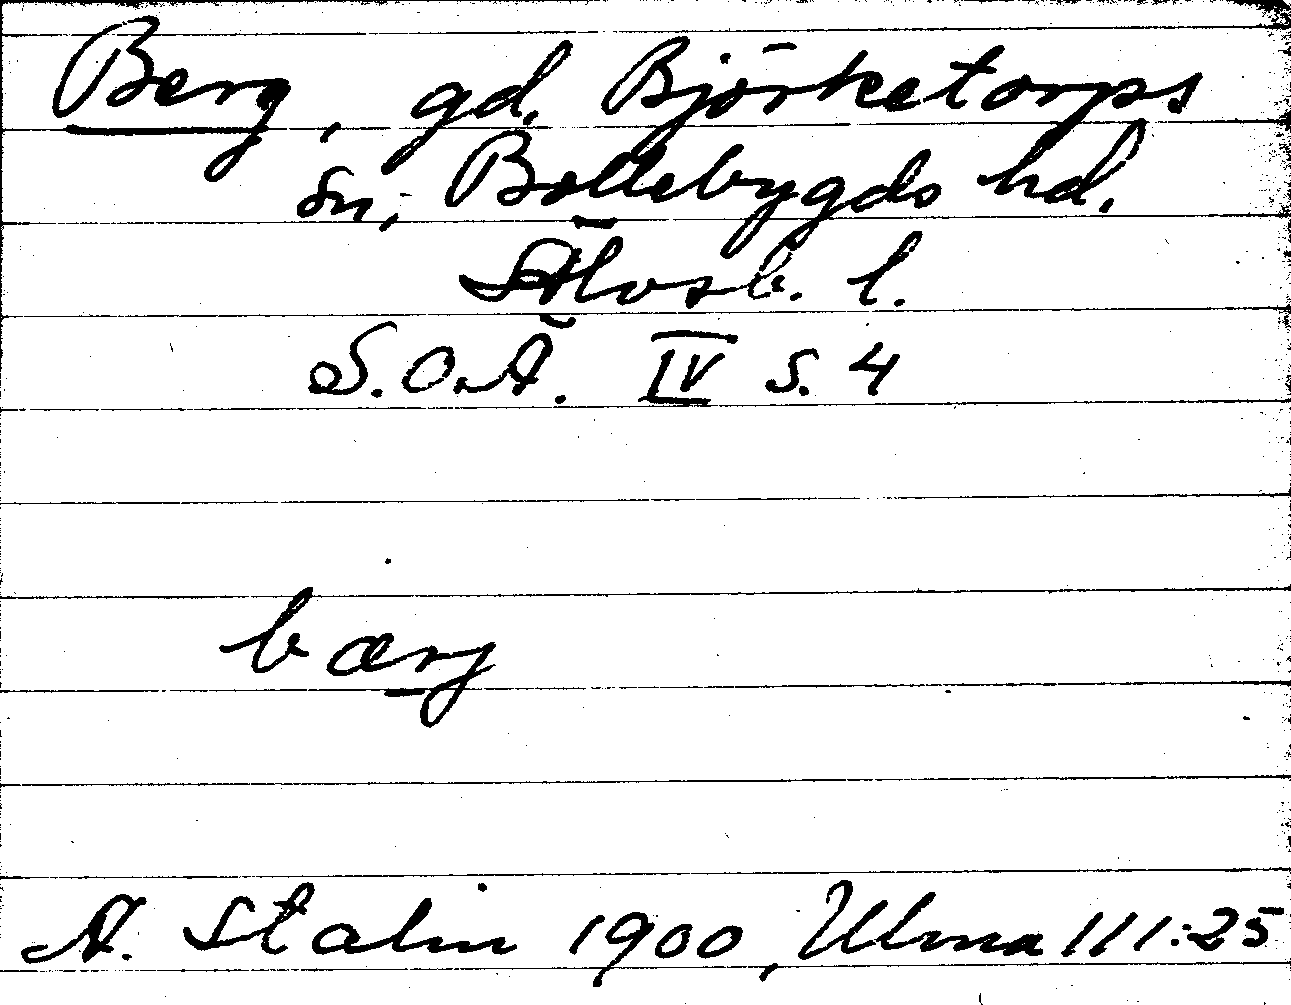 Berg, gd. Björketorps
sn, Bollebygds hd.
Älvsb. l.
S.O.Ä. IV s. 4
bærj
A. Stalin 1900, Ulma 111:25